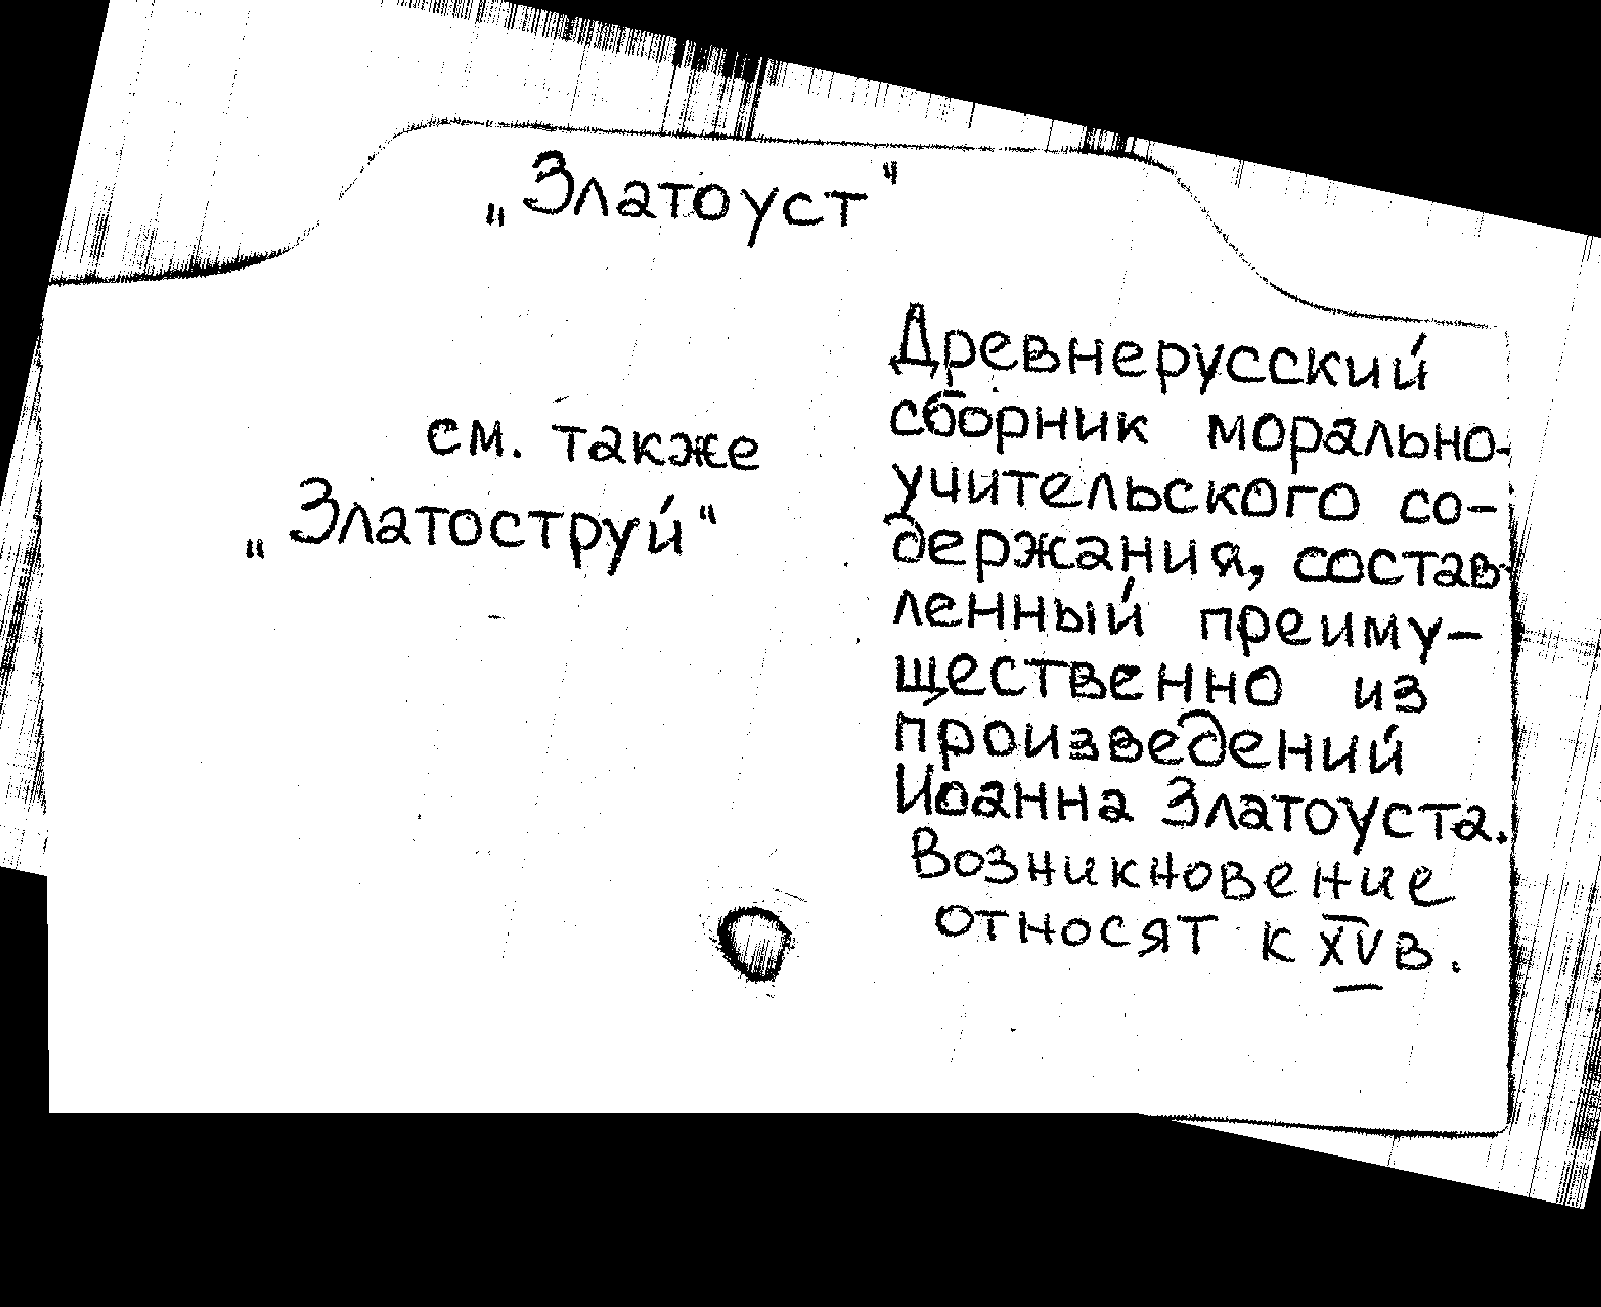 „Златоуст"
см. также
„Златоструй"
Древнерусский
сборник морально-
учительского со-
держания, состав-
ленный преиму-
щественно из
произведений
Иоанна Златоуста.
Возникновение
относят к XV в.